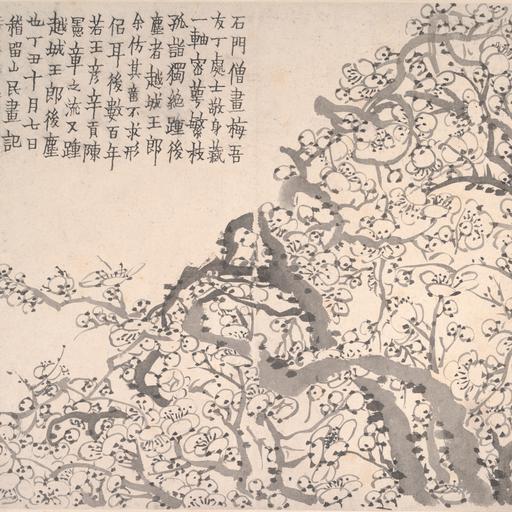 石門僧畫梅吾
友丁處士敬身藏
一軸密萼繁枝
孤詣獨絕踵後
塵者越城王郎
余仿其意不求形
佀耳後數百年
若王彥辛貢陳
憲章之流又踵
越城王郎後塵
也丁丑十月七日
稽留山民畫記